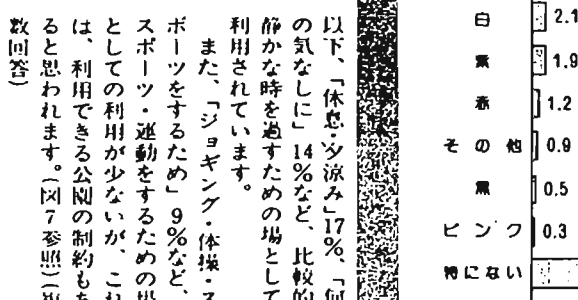 白 2.1
紫 1.9
赤 1.2
その他 0.9
黒 0.5
ピンク 0.3
特にない
以下、「休息・夕涼み」17%、「何
の気なしに」14%など、比較的
静かな時を過すための場として
利用されています。
また、「ジョギング・体操・ス
ポーツをするため」9%など、
スポーツ・運動をするための場
としての利用が少ないが、これ
は、利用できる公園の制約もあ
ると思われます。(図7参照)(複
数回答)